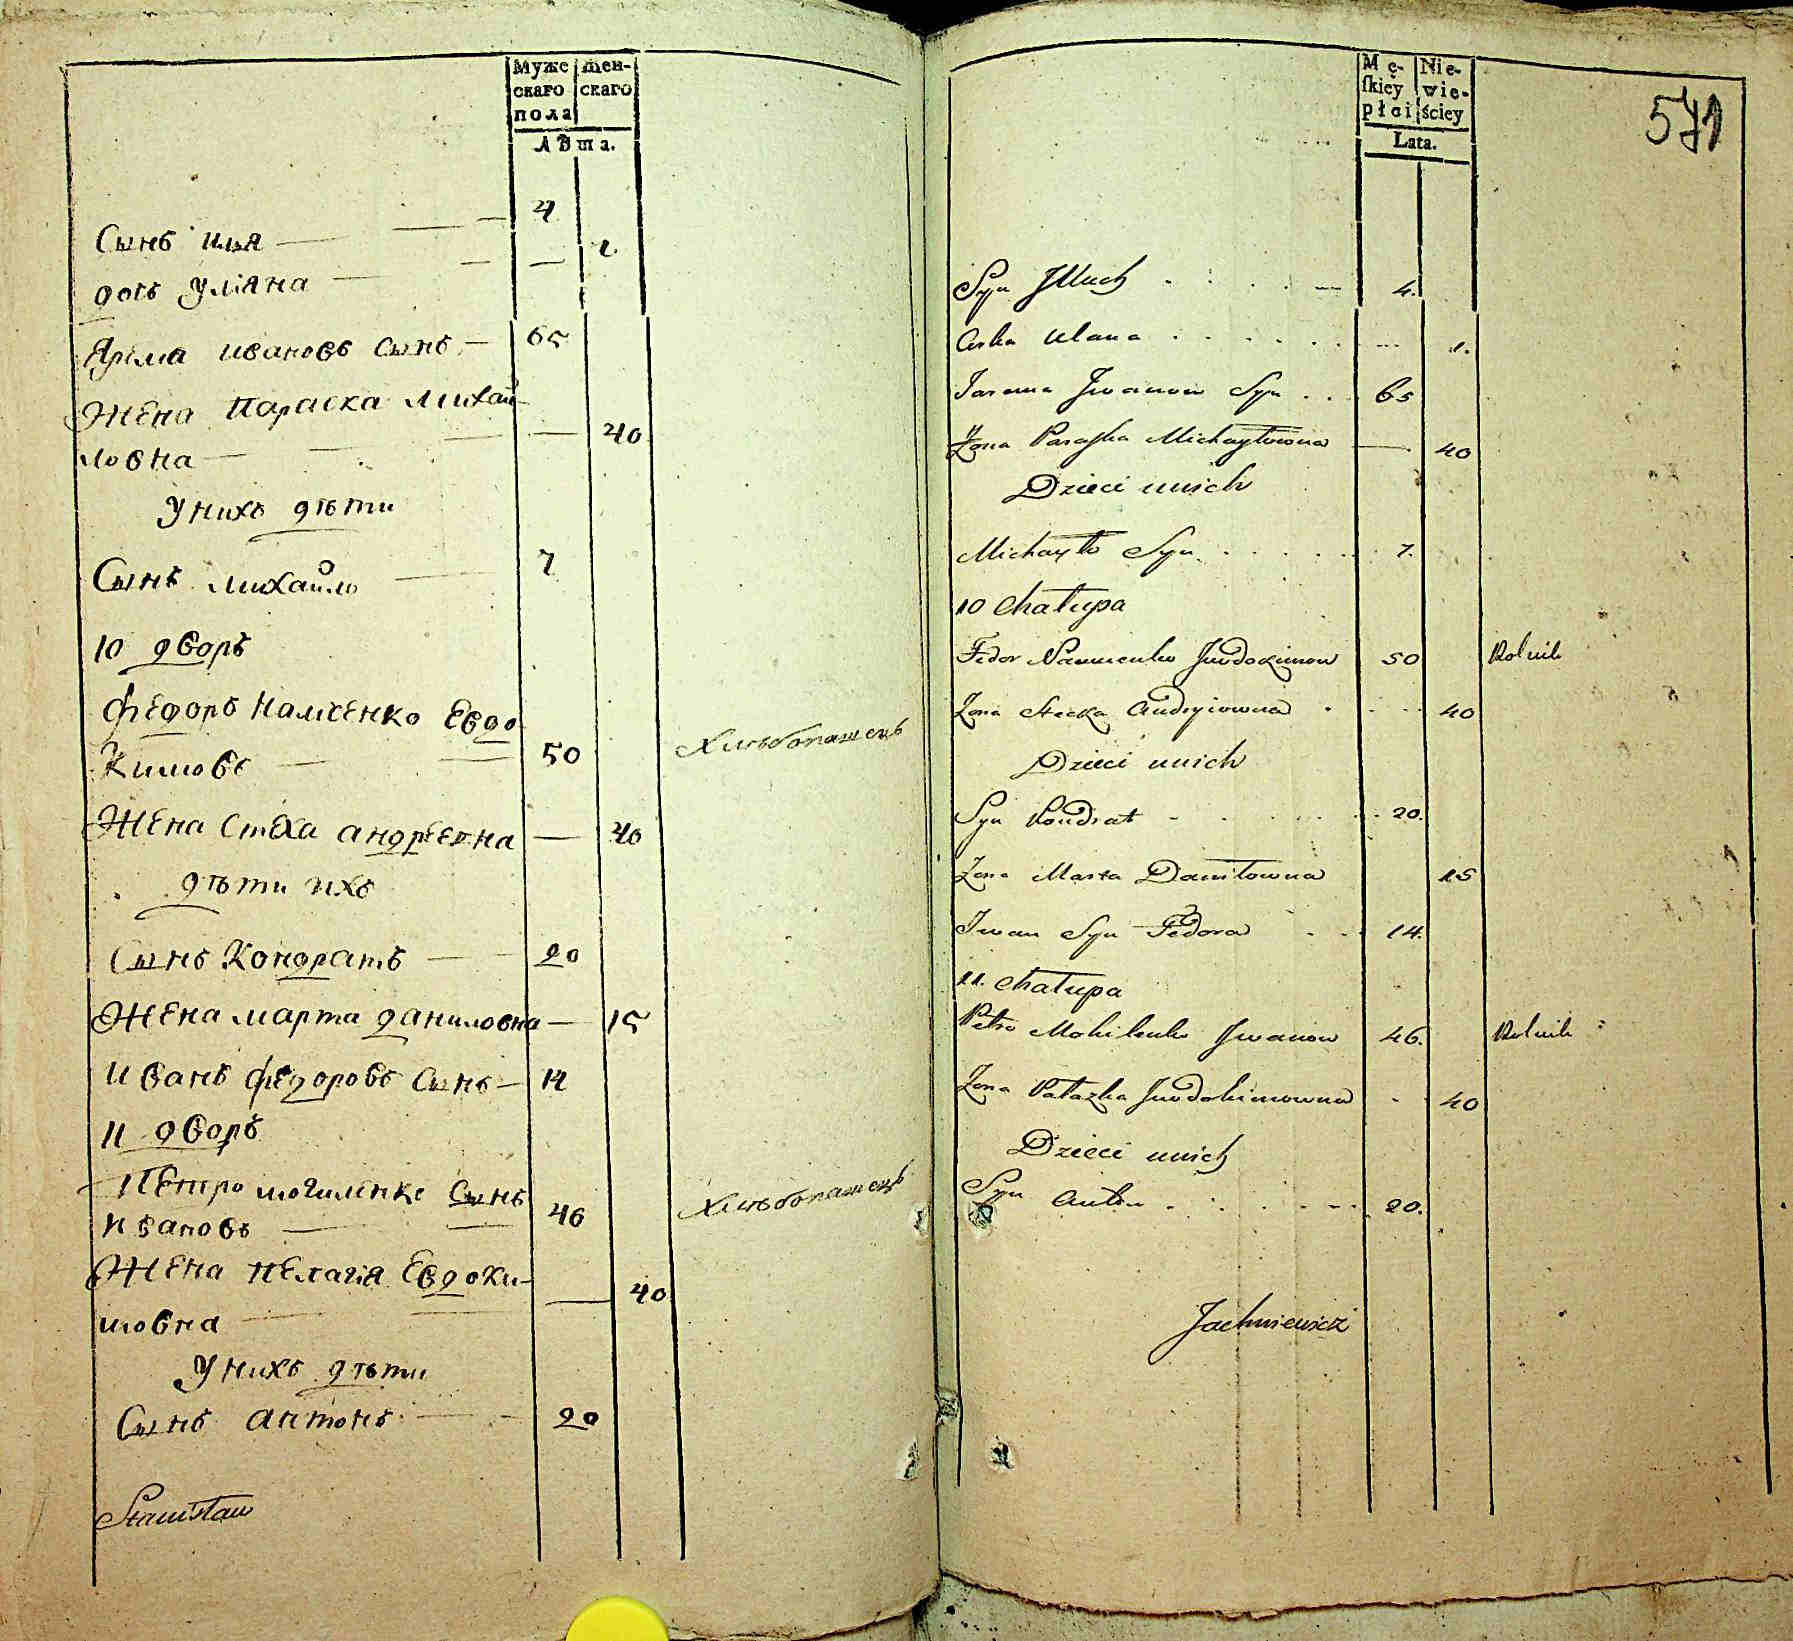 Муже
скаго
пола
Жен-
скаго
Лѣта.
Сынъ илія — 4
дочь уліяна — — 1
Ярема ивановъ Сынъ — 65
Жена Параска михай-
ловна — — 40
У нихъ дѣти
Сынъ михайло — 7
10 дворъ
Федоръ Евдо-
кимовъ — 50 Хлѣбопашецъ
Жена Стеха андреевна — 40
дѣти ихъ
Сынъ Кондратъ — 20
Жена марта даниловна — 15
Иванъ федоровъ Сынъ — 14
11 дворъ
Петро могиленко Сынъ
Ивановъ — 46 Хлѣбопашецъ
Жена пелагія Евдоки-
мовна — — 40
У нихъ дѣти
Сынъ антонъ — 20
Stanisław
571
Mę-
skiey
płci
Nie-
wie-
ściey
Lata.
Syn 4.
Corka Ulana 1.
Jarema Jwanow Syn 65
Zona Paraska Michayłowna — 40
Dzieci unich
Michayło Syn 7.
10 Chałupa
Fedor Jewdokimow 50 Rolnik
Zona Stecha Andryiowna 40
Dzieci unich
Syn Kondrat 20.
Zona Marta Daniłowna 15
Jwan Syn Fedora 14.
11. Chałupa
Petro Mohilenko Jwanow 46. Rolnik
Zona Pałazka Jewdokimowna 40
Dzieci unich
Syn Anton 20.
Jachniewicz